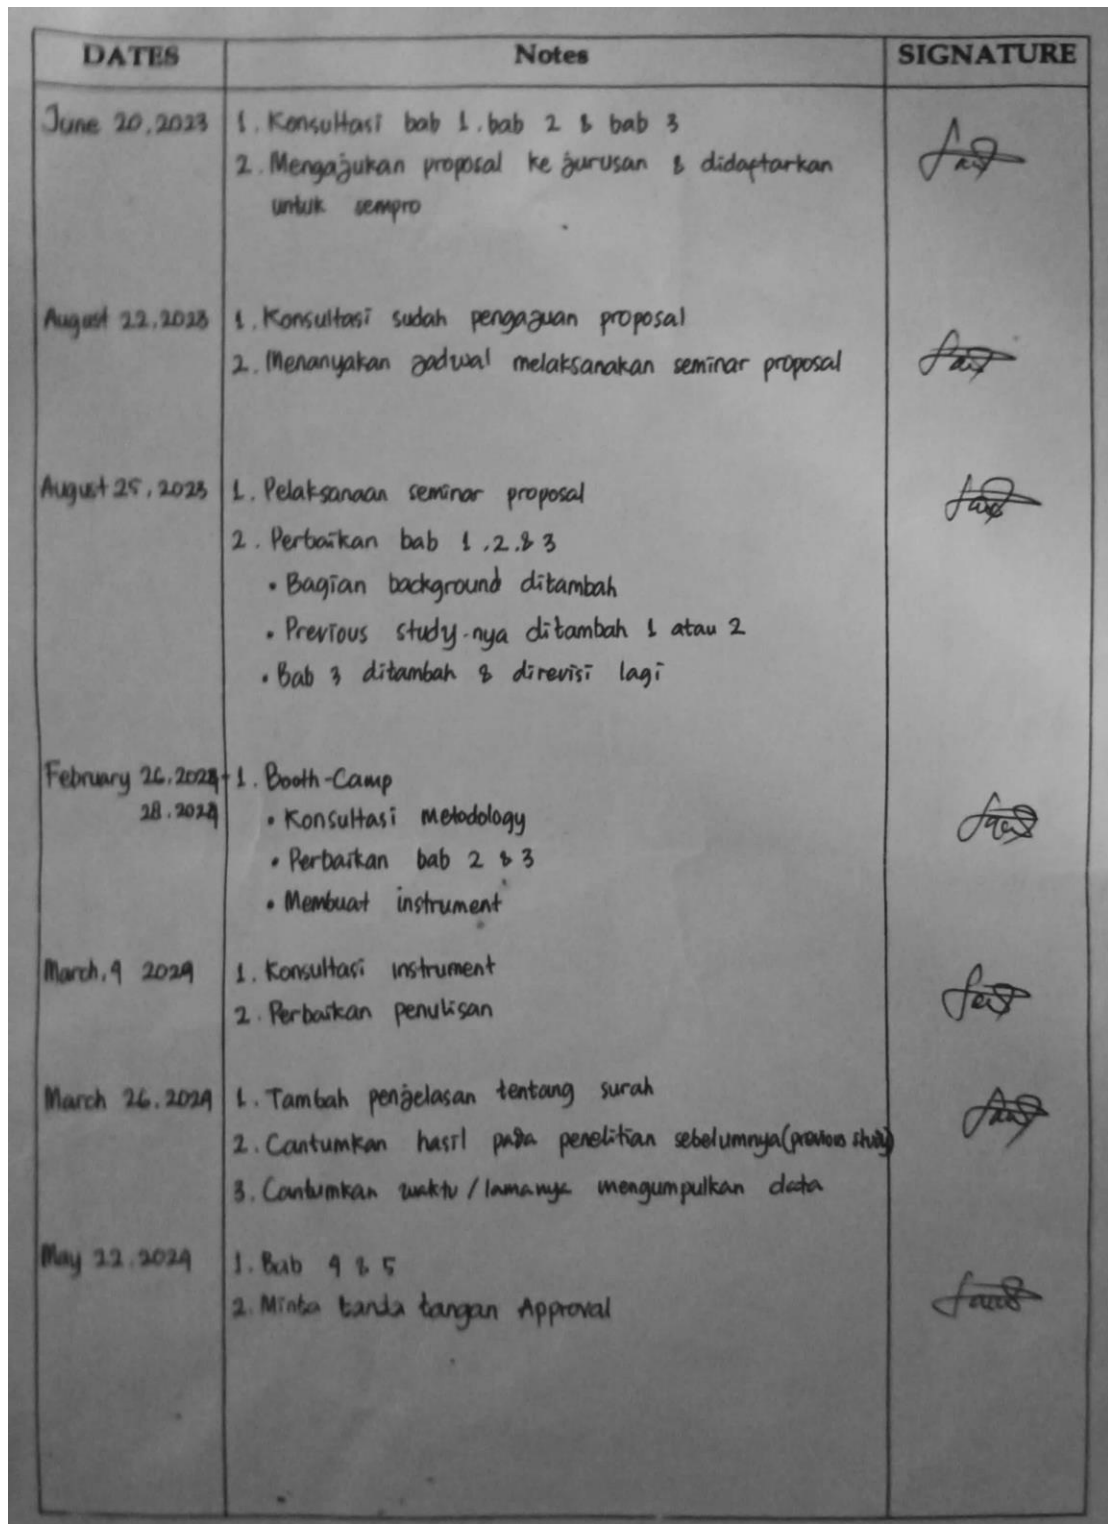 DATES Notes SIGNATURE
June 20, 2023 1. Konsultasi bab 1, bab 2 & bab 3
2. Mengajukan proposal ke jurusan & didaftarkan
untuk sempro
August 22, 2023 1. Konsultasi sudah pengajuan proposal
2. Menanyakan jadwal melaksanakan seminar proposal
August 25, 2023 1. Pelaksanaan seminar proposal
2. Perbaikan bab 1, 2, & 3
• Bagian background ditambah
• Previous study-nya ditambah 1 atau 2
• Bab 3 ditambah & direvisi lagi
February 26, 2024- 1. Booth-Camp
28, 2024 • Konsultasi Metodology
• Perbaikan bab 2 & 3
• Membuat instrument
March, 9 2024 1. Konsultasi instrument
2. Perbaikan penulisan
March 26, 2024 1. Tambah penjelasan tentang surah
2. Cantumkan hasil pada penelitian sebelumnya (previous study)
3. Cantumkan waktu / lamanya mengumpulkan data
May 22, 2024 1. Bab 4 & 5
2. Minta tanda tangan Approval